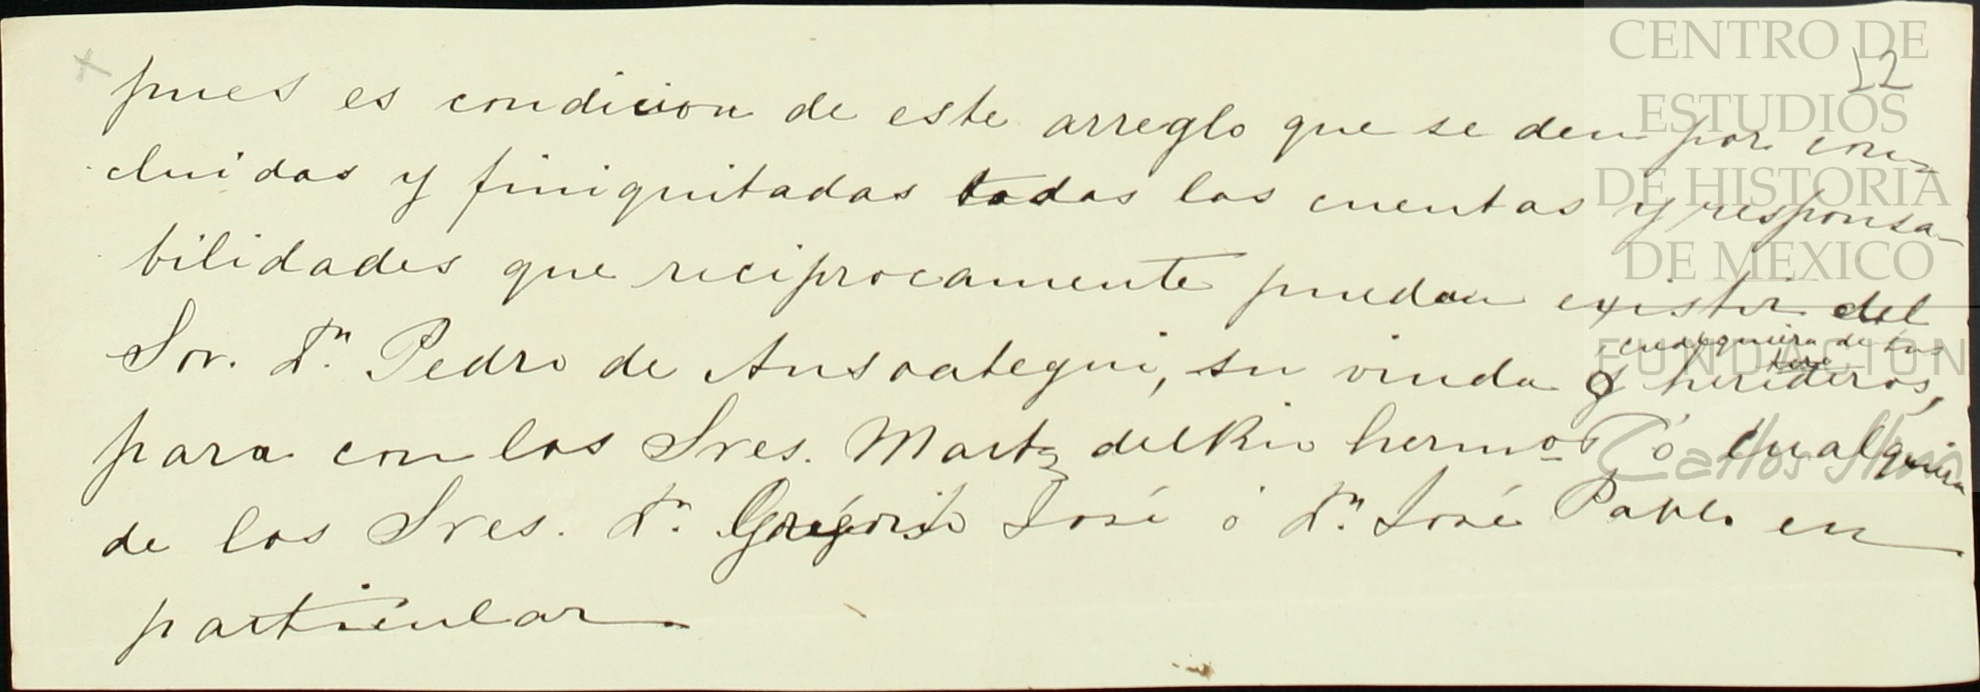 12
pues es condicion de este arreglo que se den por con-
cluidas y finiquitadas todas las cuentas y responsa-
bilidades que reciprocamente puedan existir del
cualquiera de sus
Sor. Dn. Pedro de Ansoategui, su viuda ó herederos,
para con los Sres. Martz del Rio hermos ó cualquiera
de los Sres. Dn. Gregorio José ó Dn. José Pablo en
particular
CENTRO DE
ESTUDIOS
DE HISTORIA
DE MEXICO
FUNDACION
Carlos Slim